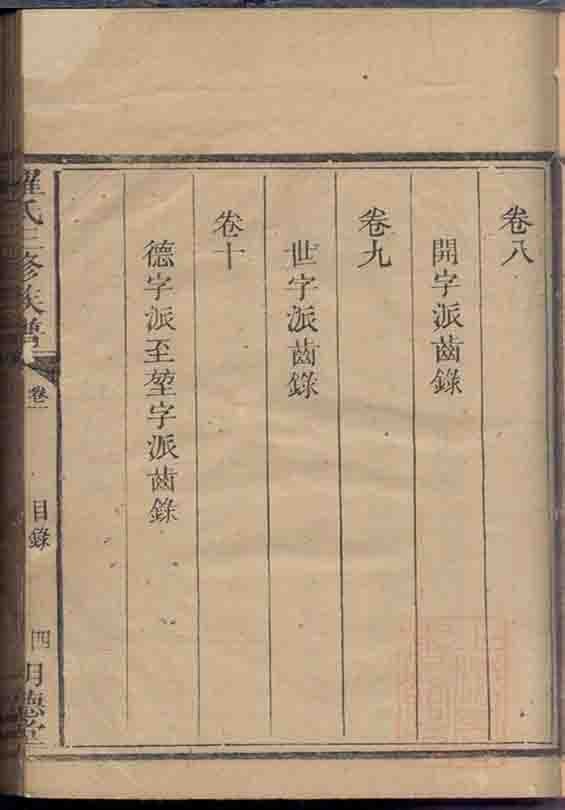 卷八
開字派齒錄
卷九
世字派齒錄
卷十
德字派至堃字派齒錄
羅氏三修族譜
卷一
目錄
四
明德堂